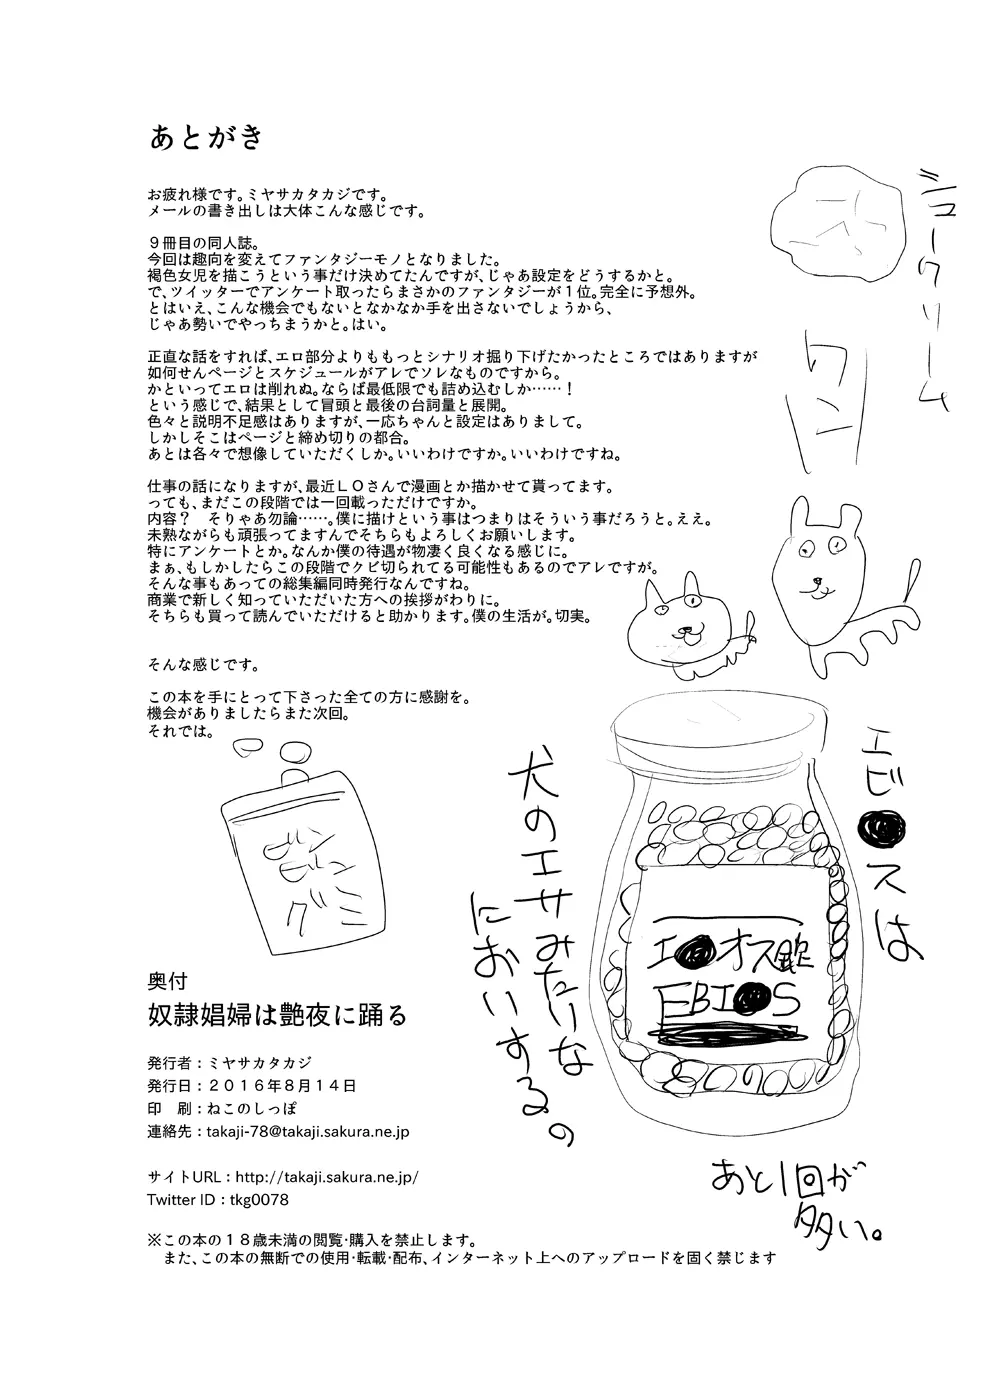 あとがき
お疲れ様です。ミヤサカタカジです。
メールの書き出しは大体こんな感じです。
９冊目の同人誌。
今回は趣向を変えてファンタジーモノとなりました。
褐色女児を描こうという事だけ決めてたんですが、じゃあ設定をどうするかと。
で、ツイッターでアンケート取ったらまさかのファンタジーが１位。完全に予想外。
とはいえ、こんな機会でもないとなかなか手を出さないでしょうから、
じゃあ勢いでやっちまうかと。はい。
正直な話をすれば、エロ部分よりももっとシナリオ掘り下げたかったところではありますが
如何せんページとスケジュールがアレでソレなものですから。
かといってエロは削れぬ。ならば最低限でも詰め込むしか……！
という感じで、結果として冒頭と最後の台詞量と展開。
色々と説明不足感はありますが、一応ちゃんと設定はありまして。
しかしそこはページと締め切りの都合。
あとは各々で想像していただくしか。いいわけですか。いいわけですね。
仕事の話になりますが、最近ＬＯさんで漫画とか描かせて貰ってます。
っても、まだこの段階では一回載っただけですか。
内容？　そりゃあ勿論……。僕に描けという事はつまりはそういう事だろうと。ええ。
未熟ながらも頑張ってますんでそちらもよろしくお願いします。
特にアンケートとか。なんか僕の待遇が物凄く良くなる感じに。
まぁ、もしかしたらこの段階でクビ切られてる可能性もあるのでアレですが。
そんな事もあっての総集編同時発行なんですね。
商業で新しく知っていただいた方への挨拶がわりに。
そちらも買って読んでいただけると助かります。僕の生活が。切実。
そんな感じです。
この本を手にとって下さった全ての方に感謝を。
機会がありましたらまた次回。
それでは。
シュークリーム
ワン
エビ●スは
犬のエサみたいな
においする。
エ●オス錠
EBI●S
あと1回が
多い。
グミ
奥付
奴隷娼婦は艶夜に踊る
発行者：ミヤサカタカジ
発行日：２０１６年８月１４日
印　刷：ねこのしっぽ
連絡先：takaji-78@takaji.sakura.ne.jp
サイトURL：http://takaji.sakura.ne.jp/
Twitter ID：tkg0078
※この本の１８歳未満の閲覧・購入を禁止します。
また、この本の無断での使用・転載・配布、インターネット上へのアップロードを固く禁じます